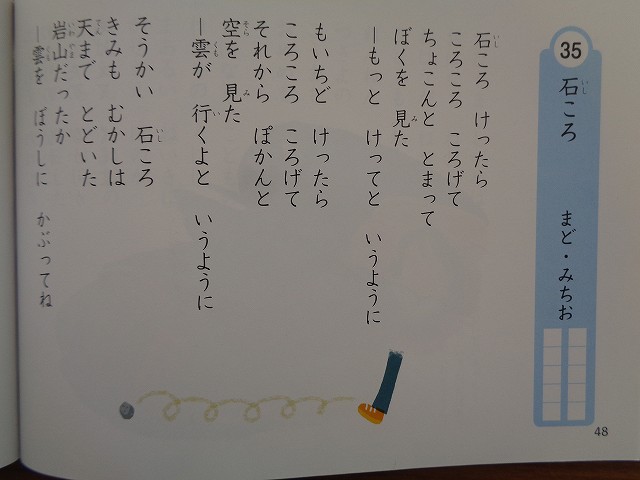 35
石ころ まど・みちお
石ころ けったら
ころころ ころげて
ちょこんと とまって
ぼくを 見た
―もっと けってと いうように
もいちど けったら
ころころ ころげて
それから ぽかんと
空を 見た
―雲が 行くよと いうように
そうかい 石ころ
きみも むかしは
天まで とどいた
岩山だったか
―雲を ぼうしに かぶってね
48